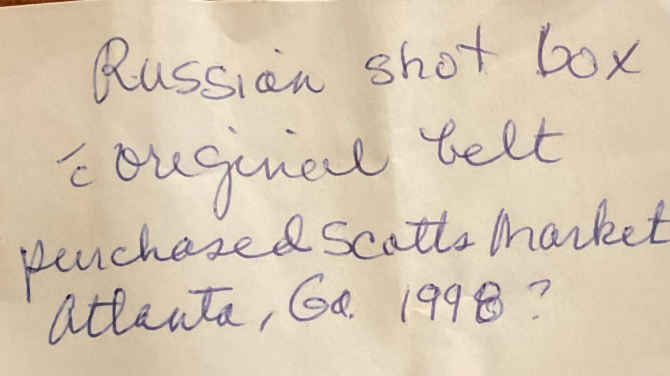 Russian shot box
c̄ original belt
purchased Scotts Market
Atlanta, Ga. 1998?